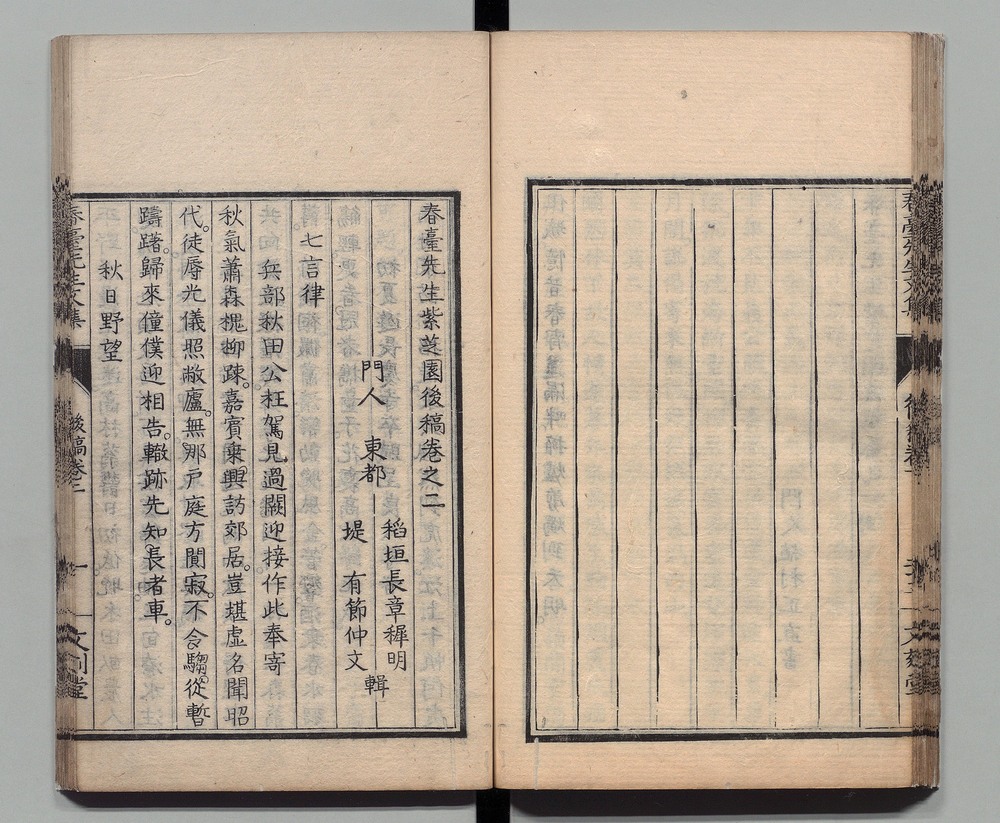 春臺先生紫芝園後稿卷之二
門人 東都 稻垣長章穉明
堤 有節仲文 輯
七言律
兵部秋田公枉駕見過闕迎接作此奉寄
秋氣蕭森槐柳疎嘉賓乘興訪郊居豈堪虛名聞昭
代徒辱光儀照敝廬無那戸庭方闃寂不令騶從暫
躊躇歸來僮僕迎相告轍跡先知長者車
秋日野望
後稿卷二